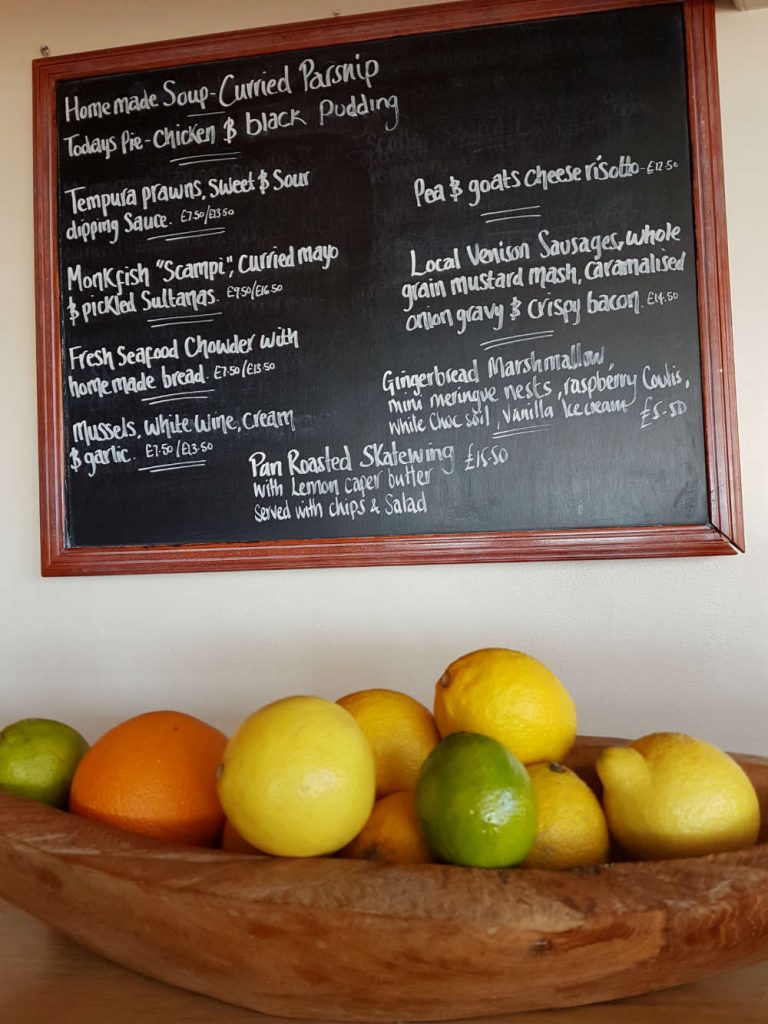 Home made Soup - Curried Parsnip
Todays Pie - Chicken & black Pudding
Tempura prawns, sweet & Sour
dipping Sauce. £7.50/£13.50
Monkfish "Scampi", Curried mayo
& pickled Sultanas. £9.50/£16.50
Fresh Seafood Chowder with
home made bread. £7.50/£13.50
Mussels, white wine, cream
& garlic. £7.50/£13.50
Pea & goats cheese risotto - £12.50
Local Venison Sausages, whole
grain mustard mash, caramalised
onion gravy & crispy bacon. £14.50
Gingerbread Marshmallow,
mini meringue nests, raspberry Coulis,
white Choc soil, vanilla Ice cream £5.50
Pan Roasted Skatewing £15.50
with Lemon caper butter
Served with chips & Salad